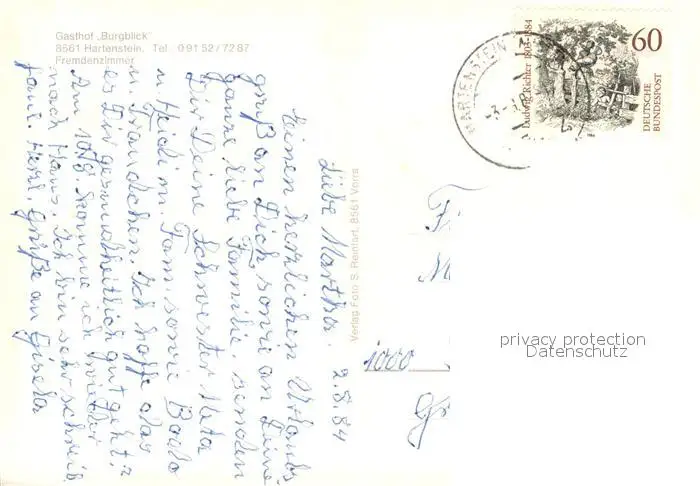 Gasthof „Burgblick"
8561 Hartenstein. Tel. 09152/7287
Fremdenzimmer
Liebe Martha. 2.8.84
Einen herzlichen Urlaubs
gruß an Dich, sowie an Deine
ganze liebe Familie, senden
Dir Deine Schwester Meta
u. Heidi m. Fam. sowie Bodo
m. Frauchen. Ich hoffe das
es Dir gesundheitlich gut geht,
Am 10/8 komme ich wieder
nach Haus. Ich bin sehr schreib
faul. Herz. Grüße an Gisela
Verlag Foto S. Reinfart, 8561 Vorra
HARTENSTEIN
Ludwig Richter 1803-1884
60
DEUTSCHE
BUNDESPOST
1000
privacy protection
Datenschutz